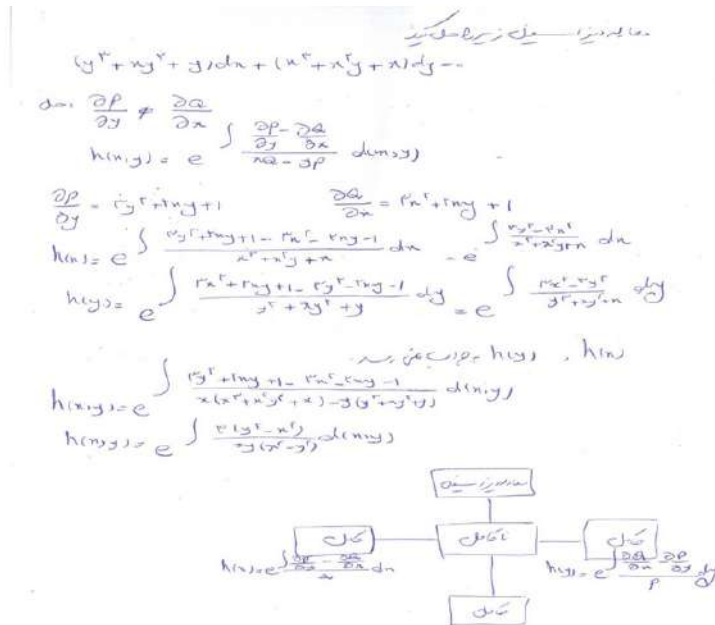 معادله دیفرانسیل زیر را حل کنید
(y³ + xy² + y)dx + (x³ + x²y + x)dy = 0
∂P/∂y ≠ ∂Q/∂x
h(x,y) = e^∫ (∂P/∂y - ∂Q/∂x)/(xQ - yP) d(x,y)
∂P/∂y = ۳y² + ۲xy + 1    ∂Q/∂x = ۳x² + ۲xy + 1
h(x) = e^∫ (۳y² + ۲xy + 1 - ۳x² - ۲xy - 1)/(x³ + x²y + x) dx = e^∫ (۳y² - ۳x²)/(x³ + x²y + x) dx
h(y) = e^∫ (۳x² + ۲xy + 1 - ۳y² - ۲xy - 1)/(y³ + xy² + y) dy = e^∫ (۳x² - ۳y²)/(y³ + xy² + x) dy
h(x) , h(y) به جواب نمی رسد
h(x,y) = e^∫ (۳y² + ۲xy + 1 - ۳x² - ۲xy - 1)/(x(x³ + x²y + x) - y(y³ + xy² + y)) d(x,y)
h(x,y) = e^∫ ۳(y² - x²)/(xy(x² - y²)) d(x,y)
معادله دیفرانسیل
کامل ناکامل کامل
h(x) = e^∫ (∂P/∂y - ∂Q/∂x)/x dx    h(y) = e^∫ (∂Q/∂x - ∂P/∂y)/P dy
کامل